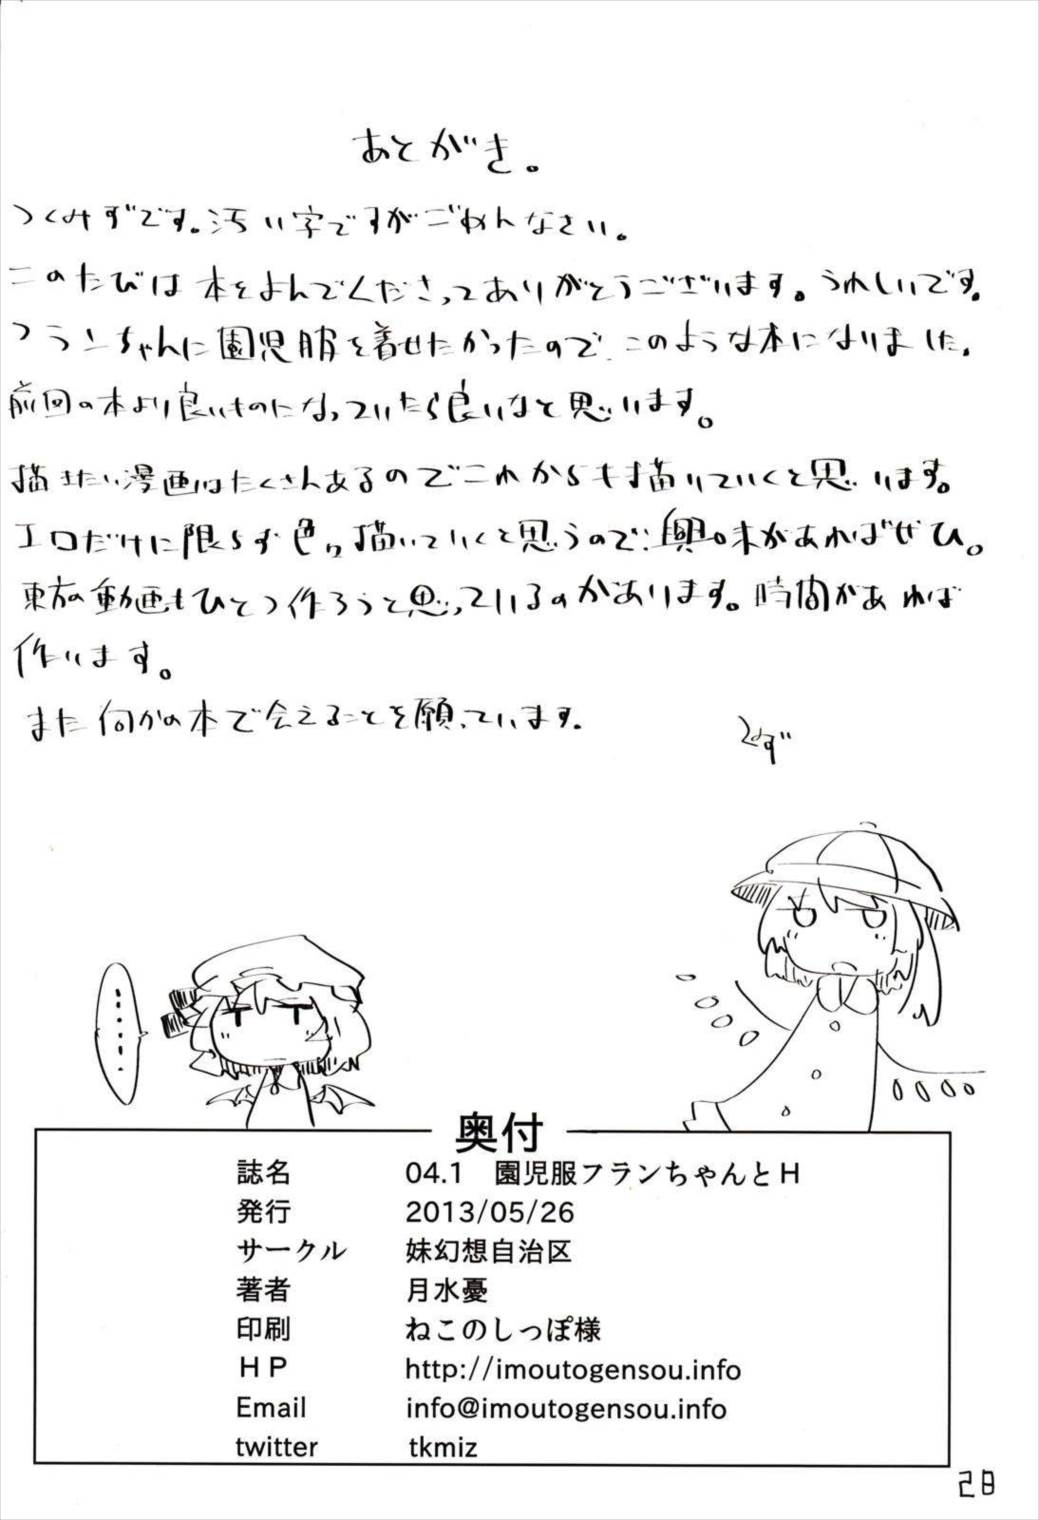 あとがき。
つくみずです。汚い字ですがごめんなさい。
このたびは本をよんでくださってありがとうございます。うれしいです。
フランちゃんに園児服を着せたかったので、このような本になりました。
前回の本より良いものになっていたら良いなと思います。
描きたい漫画はたくさんあるのでこれからも描いていくと思います。
エロだけに限らず色々描いていくと思うので、興味があればぜひ。
東方の動画もひとつ作ろうと思っているのがあります。時間があれば
作ります。
また何かの本で会えることを願っています。
みず
……
奥付
誌名 04.1 園児服フランちゃんとH
発行 2013/05/26
サークル 妹幻想自治区
著者 月水憂
印刷 ねこのしっぽ様
HP http://imoutogensou.info
Email info@imoutogensou.info
twitter tkmiz
28